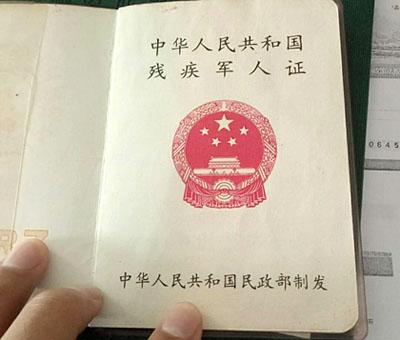 中华人民共和国
残疾军人证
中华人民共和国民政部制发
0645